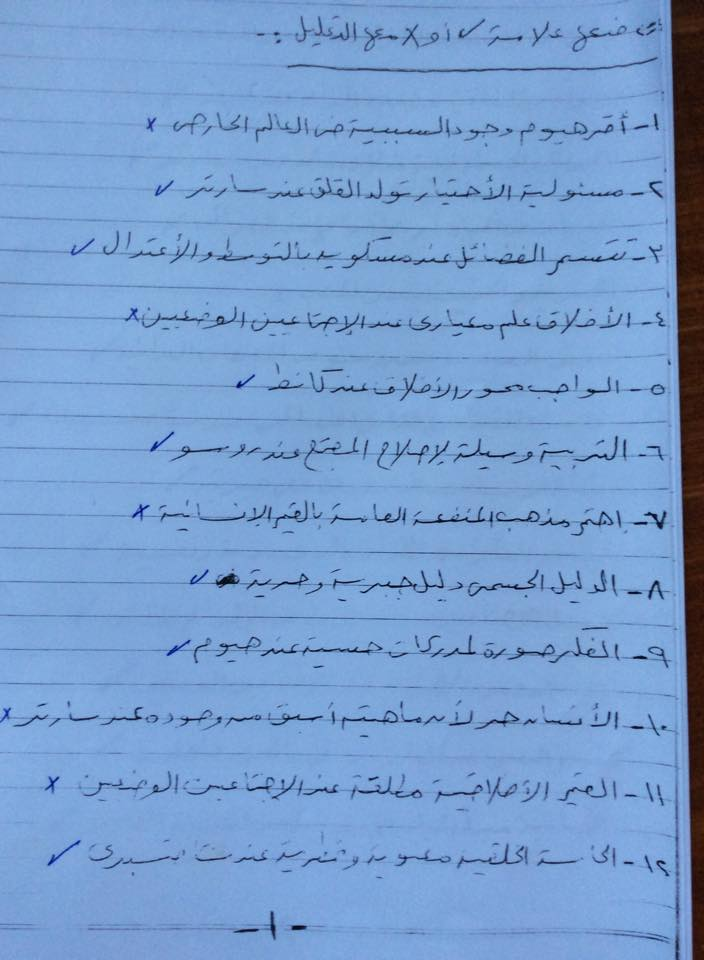 ضعى علامة ✓ أو x مع التعليل :-
١- أقر هيوم وجود السببية فى العالم الخارجى x
٢- مسئولية الأختيار تولد القلق عند سارتر ✓
٣- تتسم الفضائل عند مسكويه بالتوسط والأعتدال ✓
٤- الأخلاق علم معيارى عند الإجتماعيين الوضعيين x
٥- الواجب محور الأخلاق عند كانط ✓
٦- التربية وسيلة لإصلاح المجتمع عند روسو ✓
٧- إهتم مذهب المنفعة العامة بالقيم الإنسانية x
٨- الدليل الجسمى دليل جبرية وحرية ✓
٩- الفكر صورة لمدركات حسية عند هيوم ✓
١٠- الأنسان حر لأن ماهيته أسبق من وجوده عند سارتر x
١١- القيم الأخلاقية مطلقة عند الإجتماعين الوضعين x
١٢- الحاسة الخلقية معنوية وفطرية عند شافتسبرى ✓
-١-